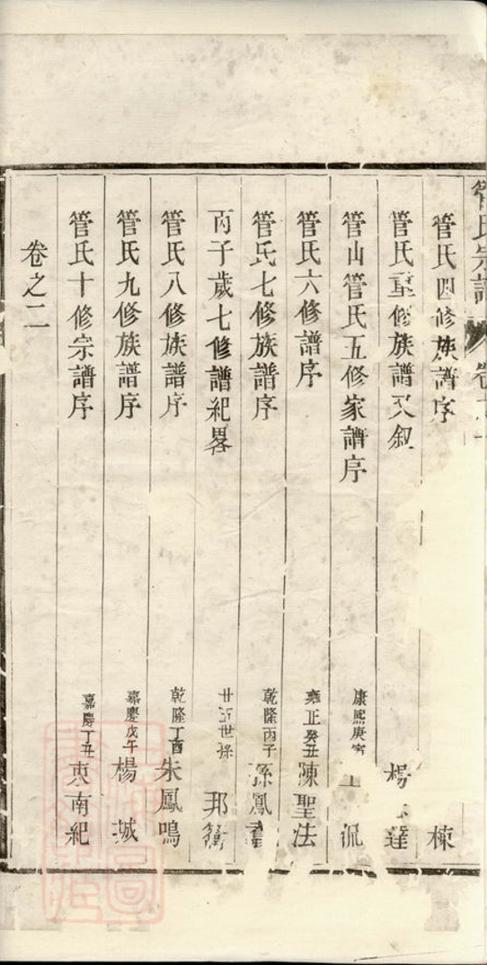 管氏宗譜 卷
管氏四修族譜序 棟
管氏重修族譜又叙 楊 達
管山管氏五修家譜序 康熙庚寅 侃
管氏六修譜序 雍正癸丑 陳聖法
管氏七修族譜序 乾隆丙子 孫鳳
丙子歲七修譜紀畧 廿五世孫 邦
管氏八修族譜序 乾隆丁酉 朱鳳鳴
管氏九修族譜序 嘉慶戊午 楊城
管氏十修宗譜序 嘉慶丁丑 東南紀
卷之二